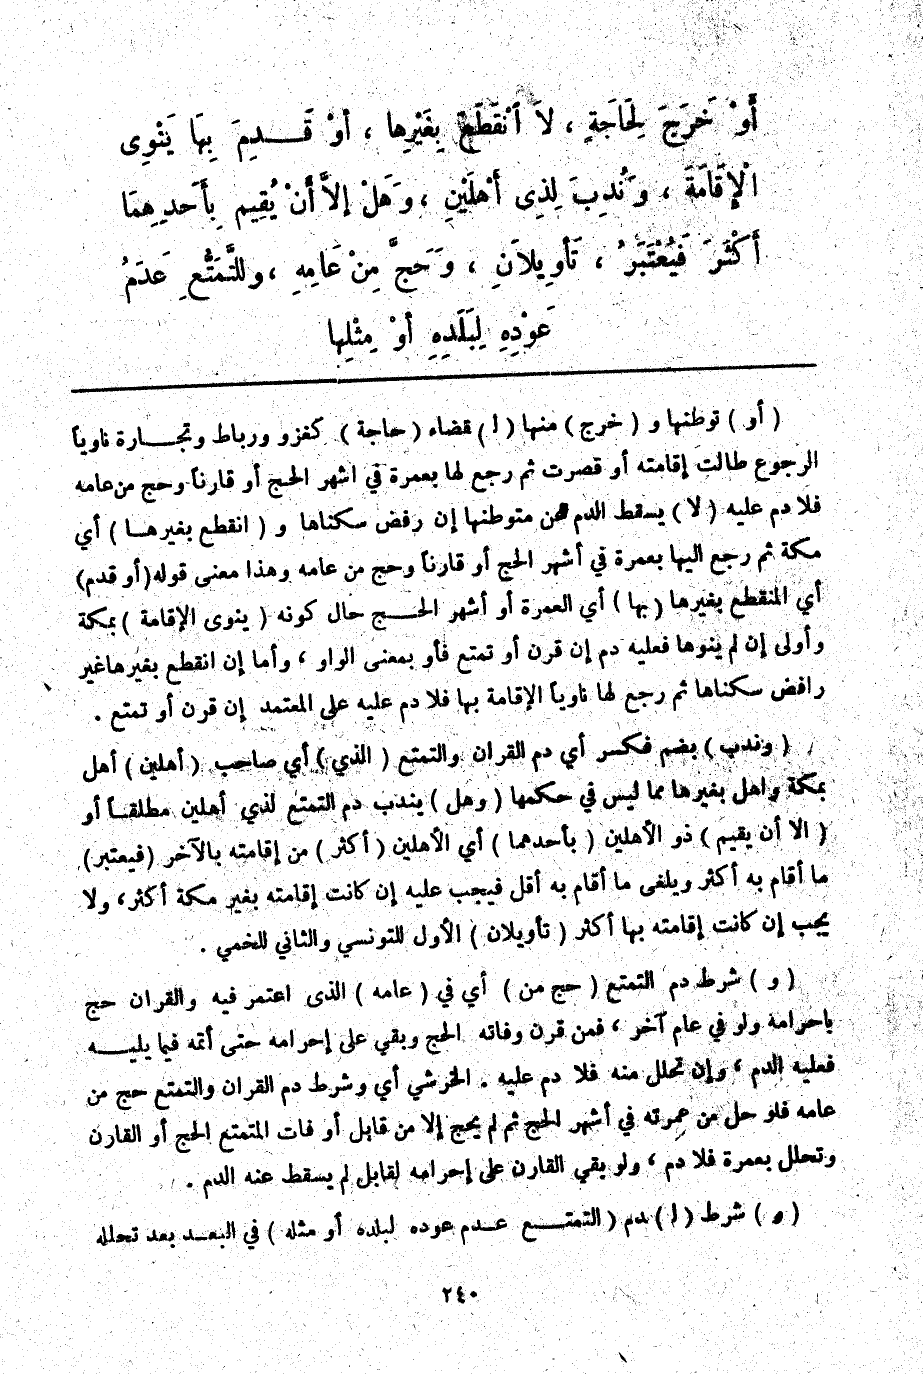 أَوْ خَرَجَ لِحَاجَةٍ ، لاَ أنْقَطَعَ بِغَيْرِها ، أوْ قَـــدِمَ بِهَا يَنْوِى
الْإِقَامَةَ ، وَنُدِبَ لِذِى أَهْلَيْنِ ، وَهَلْ إلاَّ أَنْ يُقِيم بِأَحَدِهِمَا
أَكْثَرَ فَيُعْتَبَرُ ، تَأوِيلاَنِ ، وَحَجَّ مِنْ عَامِهِ ، وللتَّمَتُّعِ عَدَمُ
عَوْدِهِ لِبَلَدِهِ أوْ مِثْلِها
( أو ) توطنها و ( خرج ) منها ( ا ) قضاء ( حاجة ) كغزو ورباط وتجـــارة ناوياً
الرجوع طالت إقامته أو قصرت ثم رجع لها بعمرة في اشهر الحج أو قارناً وحج من عامه
فلا دم عليه ( لا ) يسقط الدم عن متوطنها إن رفض سكناها و ( انقطع بغيرهـا ) أي
مكة ثم رجع اليها بعمرة في أشهر الحج أو قارناً وحج من عامه وهذا معنى قوله (أو قدم)
أي المنقطع بغيرها ( بها ) أي العمرة أو أشهر الحـــج حال كونه ( ينوى الإقامة ) بمكة
وأولى إن لم ينوها فعليه دم إن قرن أو تمتع فأو بمعنى الواو ، وأما إن انقطع بغيرها غير
رافض سكناها ثم رجع لها ناوياً الإقامة بها فلا دم عليه على المعتمد إن قرن أو تمتع .
( وندب ) بضم فكسر أي دم القران والتمتع ( الذي ) أي صاحب ( أهلين ) أهل
بمكة واهل بغيرها مما ليس في حكمها ( وهل ) يندب دم التمتع لذي أهلين مطلقـاً أو
( الا أن يقيم ) ذو الأهلين ( بأحدهما ) أي الأهلين ( أكثر ) من إقامته بالآخر (فيعتبر)
ما أقام به أكثر ويلغى ما أقام به أقل فيجب عليه إن كانت إقامته بغير مكة أكثر، ولا
يجب إن كانت إقامته بها أكثر ( تأويلان ) الأول للتونسي والثاني للخمي .
( و ) شرط دم التمتع ( حج من ) أي في ( عامه ) الذى اعتمر فيه والقران حج
باحرامه ولو في عام آخر ، فمن قرن وفاته الحج وبقي على إحرامه حتى أتمه فيما يليـــه
فعليه الدم ، وإن تحلل منه فلا دم عليه . الخرشي أي وشرط دم القران والتمتع حج من
عامه فلو حل من عمرته في أشهر الحج ثم لم يحج إلا من قابل أو فات المتمتع الحج أو القارن
وتحلل بعمرة فلا دم ، ولو بقي القارن على إحرامه لقابل لم يسقط عنه الدم .
( و ) شرط ( ا ) بدم ( التمتـــع عـدم عوده لبلده أو مثله ) في البعـد بعد تحلله
٢٤٠